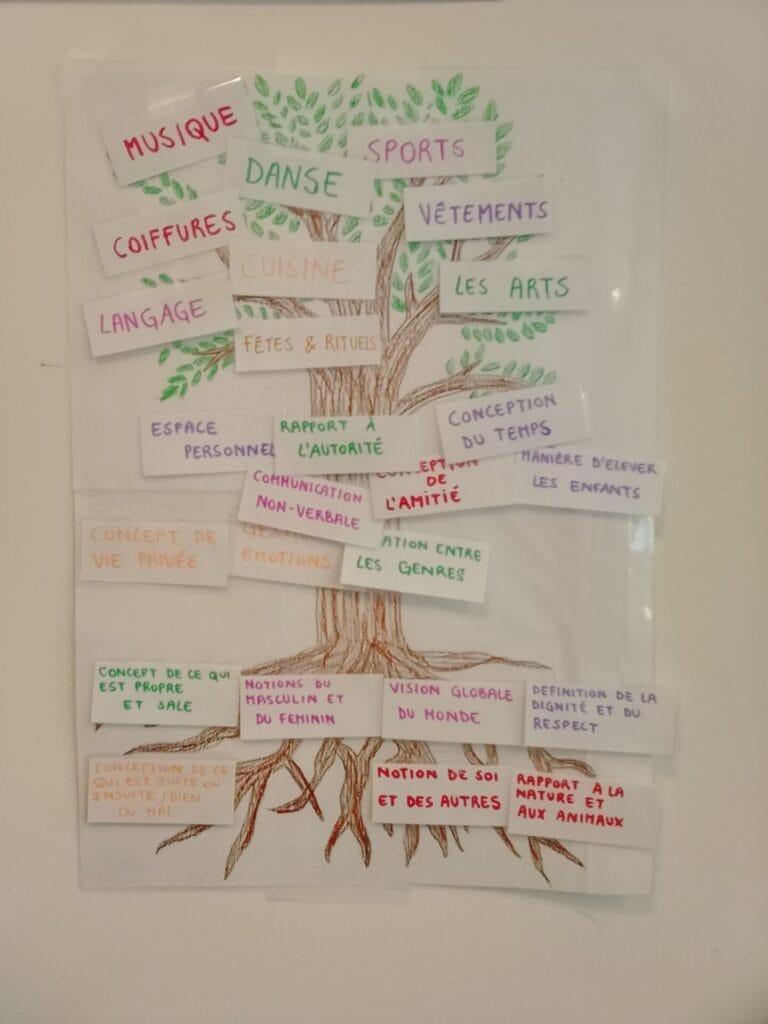 MUSIQUE
SPORTS
DANSE
VÊTEMENTS
COIFFURES
CUISINE
LES ARTS
LANGAGE
FÊTES & RITUELS
ESPACE
PERSONNEL
RAPPORT À
L'AUTORITÉ
CONCEPTION
DU TEMPS
COMMUNICATION
NON-VERBALE
CONCEPTION
DE
L'AMITIÉ
MANIÈRE D'ELEVER
LES ENFANTS
CONCEPT DE
VIE PRIVÉE
EMOTIONS
ENTRE
LES GENRES
CONCEPT DE CE QUI
EST PROPRE
ET SALE
NOTIONS DU
MASCULIN ET
DU FEMININ
VISION GLOBALE
DU MONDE
DEFINITION DE LA
DIGNITÉ ET DU
RESPECT
CONCEPTION DE CE
QUI EST JUSTE OU
INJUSTE / BIEN
OU MAL
NOTION DE SOI
ET DES AUTRES
RAPPORT A LA
NATURE ET
AUX ANIMAUX